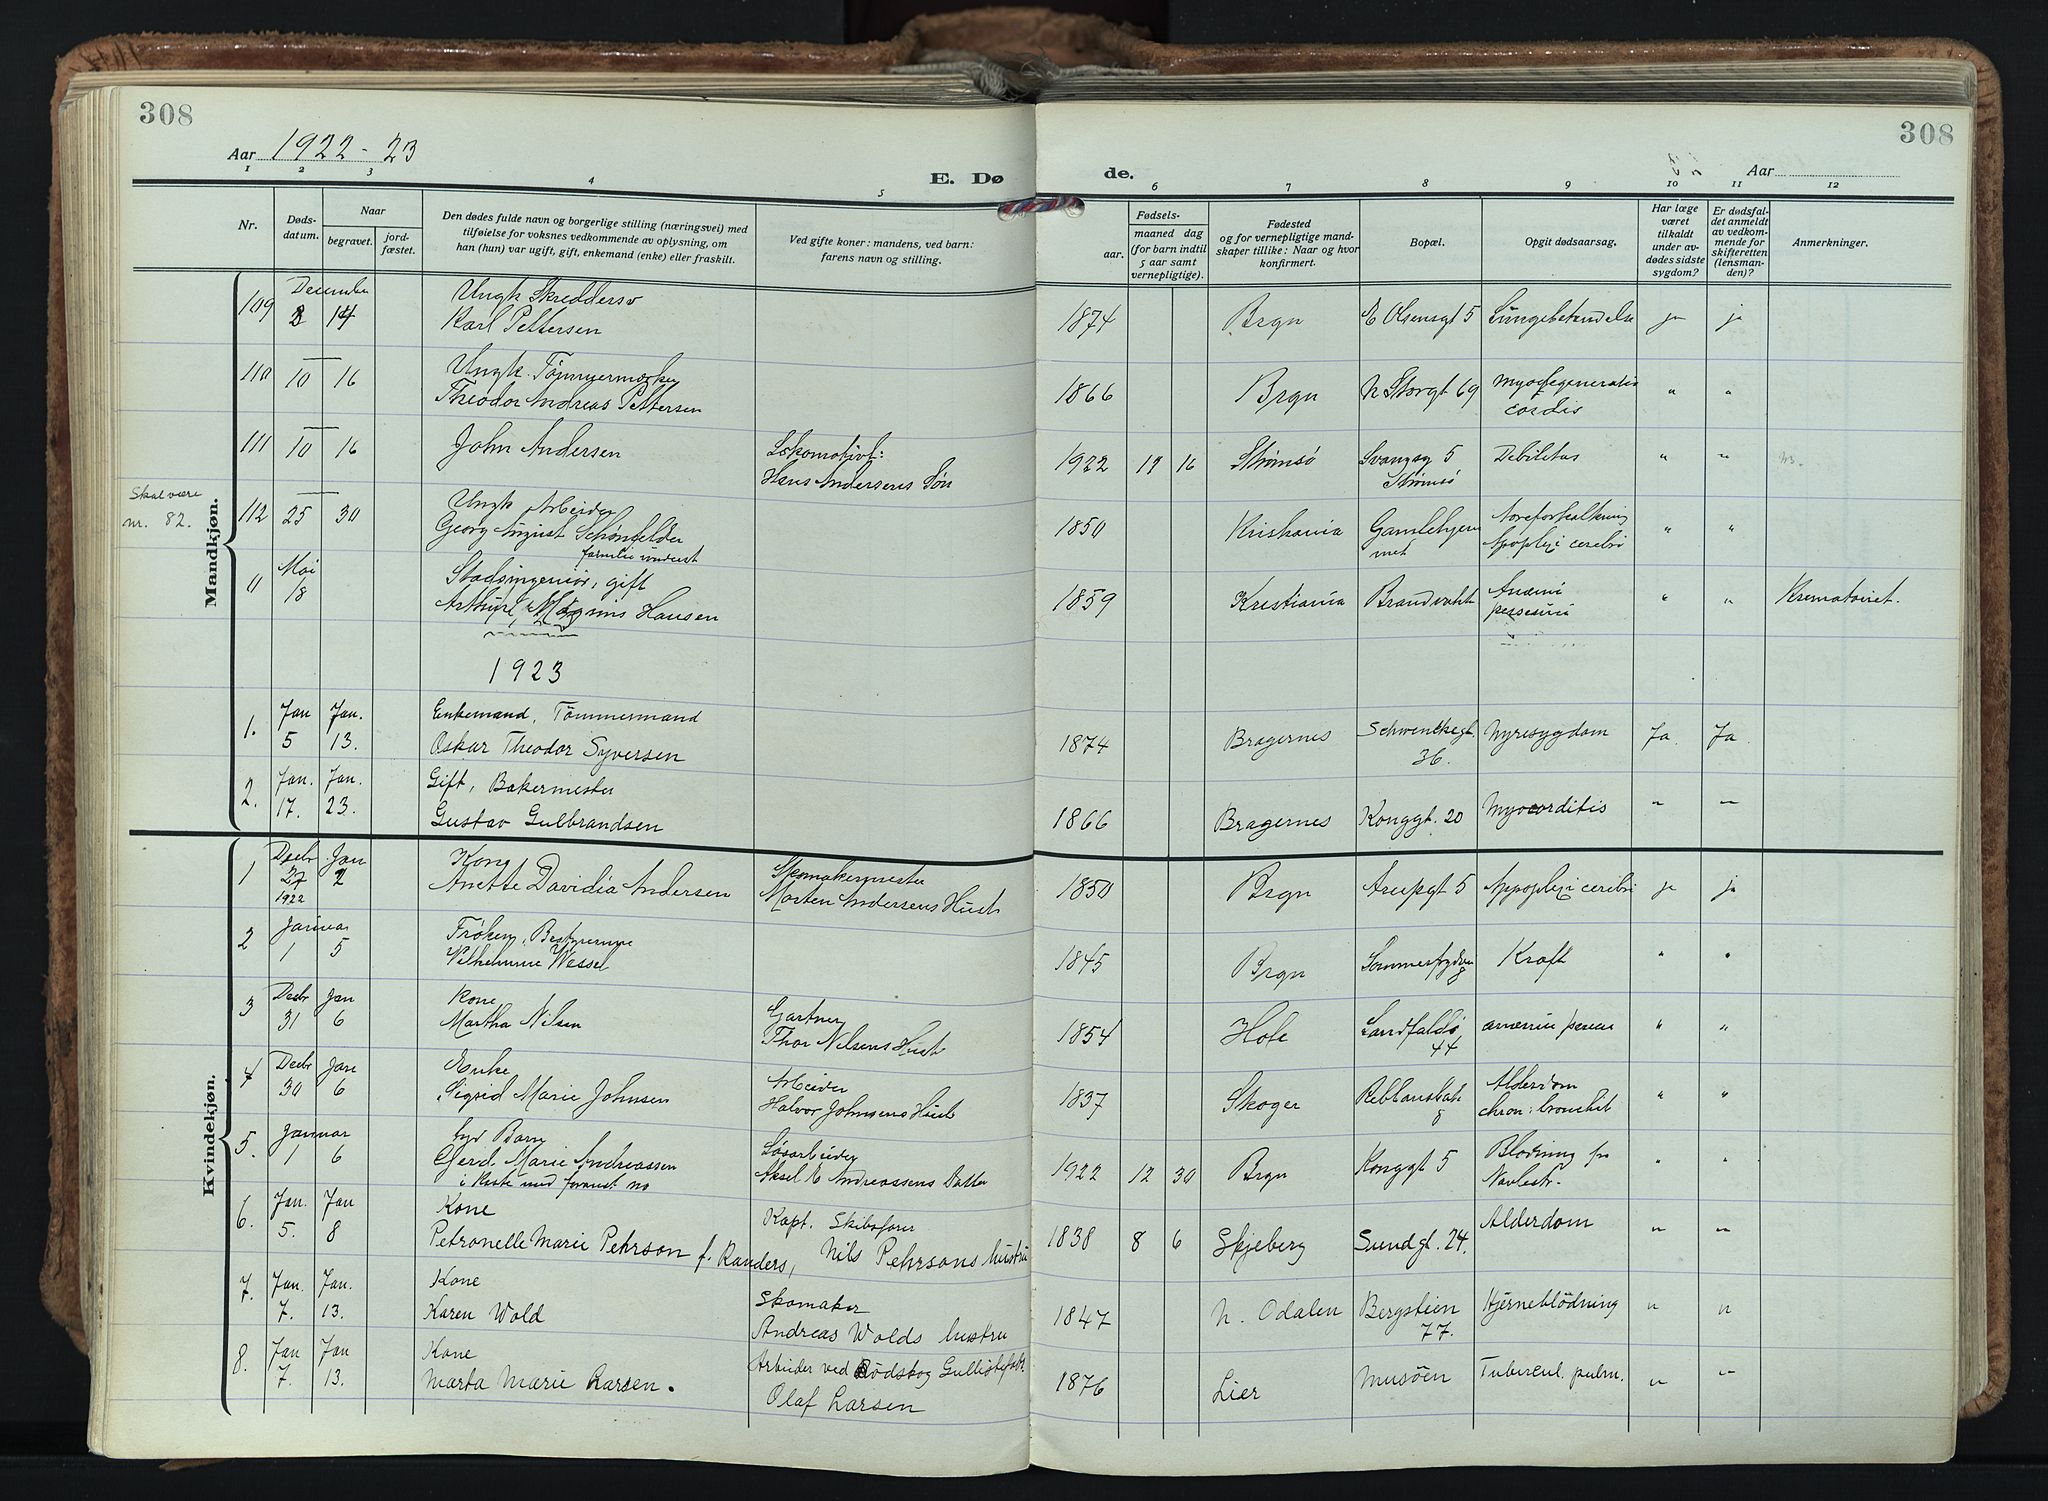 308
308
Aar 1922-23
E. Dø
de.
Aar
1 2 3 4 5 6 7 8 9 10 11 12
Nr.
Døds-
datum.
Naar
begravet.
jord-
fæstet.
Den dødes fulde navn og borgerlige stilling (næringsvei) med
tilføielse for voksnes vedkommende av oplysning, om
han (hun) var ugift, gift, enkemand (enke) eller fraskilt.
Ved gifte koner: mandens, ved barn:
farens navn og stilling.
Fødsels-
aar.
maaned dag
(for barn indtil
5 aar samt
vernepligtige).
Fødested
og for vernepligtige mand-
skaper tillike: Naar og hvor
konfirmert.
Bopæl.
Opgit dødsaarsag.
Har læge
været
tilkaldt
under av-
dødes sidste
sygdom?
Er dødsfal-
det anmeldt
av vedkom-
mende for
skifteretten
(lensman-
den)?
Anmerkninger.
Mandkjøn.
December
Ungk Skreddersv
109 8 14 Karl Pettersen 1874 Brgn E Olsensgt 5 Lungebetendelse ja ja
Ungk. Tømmermerker
110 10 16 Theodor Andreas Pettersen 1866 Brgn N Storgt 69 Myodegeneratio
cordis " "
111 10 16 John Andersen Lokomotivf:
Hans Andersens Søn 1922 16 Strømsø 5
Strømsø Debilitas " "
Skal være
nr. 82.
Ungk Arbeider
112 25 30 Georg August Schønfelder 1850 Kristiania Gamlehjem
met Aareforkalkning
Apoplexi cerebri " "
Mai
18
Stadsingeniør, gift
Magnus Hansen 1859 Kristiania Brandvakt " " Krematoriet.
1923
Jan Jan. Enkemand, Tømmermand
1. 5 13. Oskar Theodor Syversen 1874 Bragernes Schwenckegt.
36. Nyresygdom Ja. Ja
Jan. Jan. Gift, Bakermester
2. 17. 23. Gustav Gulbrandsen 1866 Bragernes Konggt. 20 Myocorditis " "
Kvindekjøn.
Decbr Jan Kone Skomakermester
1 27 2 Anette Davidia Andersen Morten Andersens Hust 1850 Brgn Arupgt 5 Appoplexi cerebri ja ja
1922
Januar Frøken, Bestyrerinne
2 1 5 Vilhelmine Wessel 1845 Brgn
8 Kræft " "
Decbr Jan Kone Gartner
3 31 6 Martha Nilsen Thor Nilsens Hust 1854 Hole Landfaldsø
44 " "
Decbr Jan Enke Arbeider
4 30 6 Sigrid Marie Johnsen Halvor Johnsens Hust 1837 Skoger
8 Alderdom
chron: bronchit " "
Januar Barn Løsarbeider
5. 1 6 Gerd Marie Andreassen Aksel E Andreassens Datter 1922 12 30 Brgn Konggt 5 Blødning fra
Navlestr. " "
Jan. Jan Kone Kapt. Skibsfører
6. 5. 8 Petronelle Marie Pehrson f. Randers, Nils Pehrsons hustru 1838 8 6 Skjeberg Sundgt. 24. Alderdom " "
Jan. Jan. Kone Skomaker
7. 7. 13. Karen Wold Andreas Wolds hustru 1847 N. Odalen Bergstien
77. Hjerneblödning " "
Jan Jan Kone Arbeider ved
8. 7. 13. Marta Marie Larsen. Olaf Larsen 1876 Lier Musöen Tubercul. pulm. " "